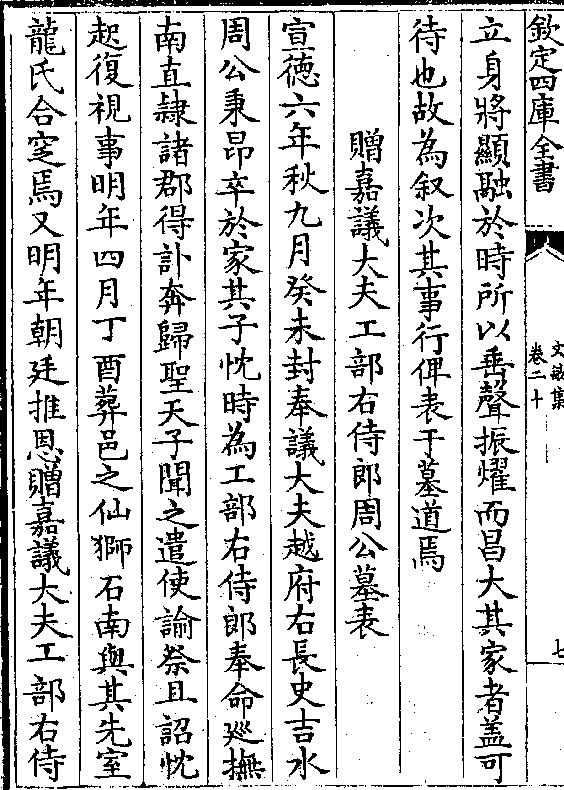 欽定四庫全書
文敏集
卷二十
七
立身將顯融於時所以垂聲振燿而昌大其家者盖可
待也故為叙次其事行俾表于墓道焉
贈嘉議大夫工部右侍郎周公墓表
宣徳六年秋九月癸未封奉議大夫越府右長史吉水
周公秉昂卒於家其子忱時為工部右侍郎奉命廵撫
南直隷諸郡得訃奔歸聖天子聞之遣使諭祭且詔忱
起復視事明年四月丁酉葬邑之仙獅石南與其先室
龍氏合窆焉又明年朝廷推恩贈嘉議大夫工部右侍